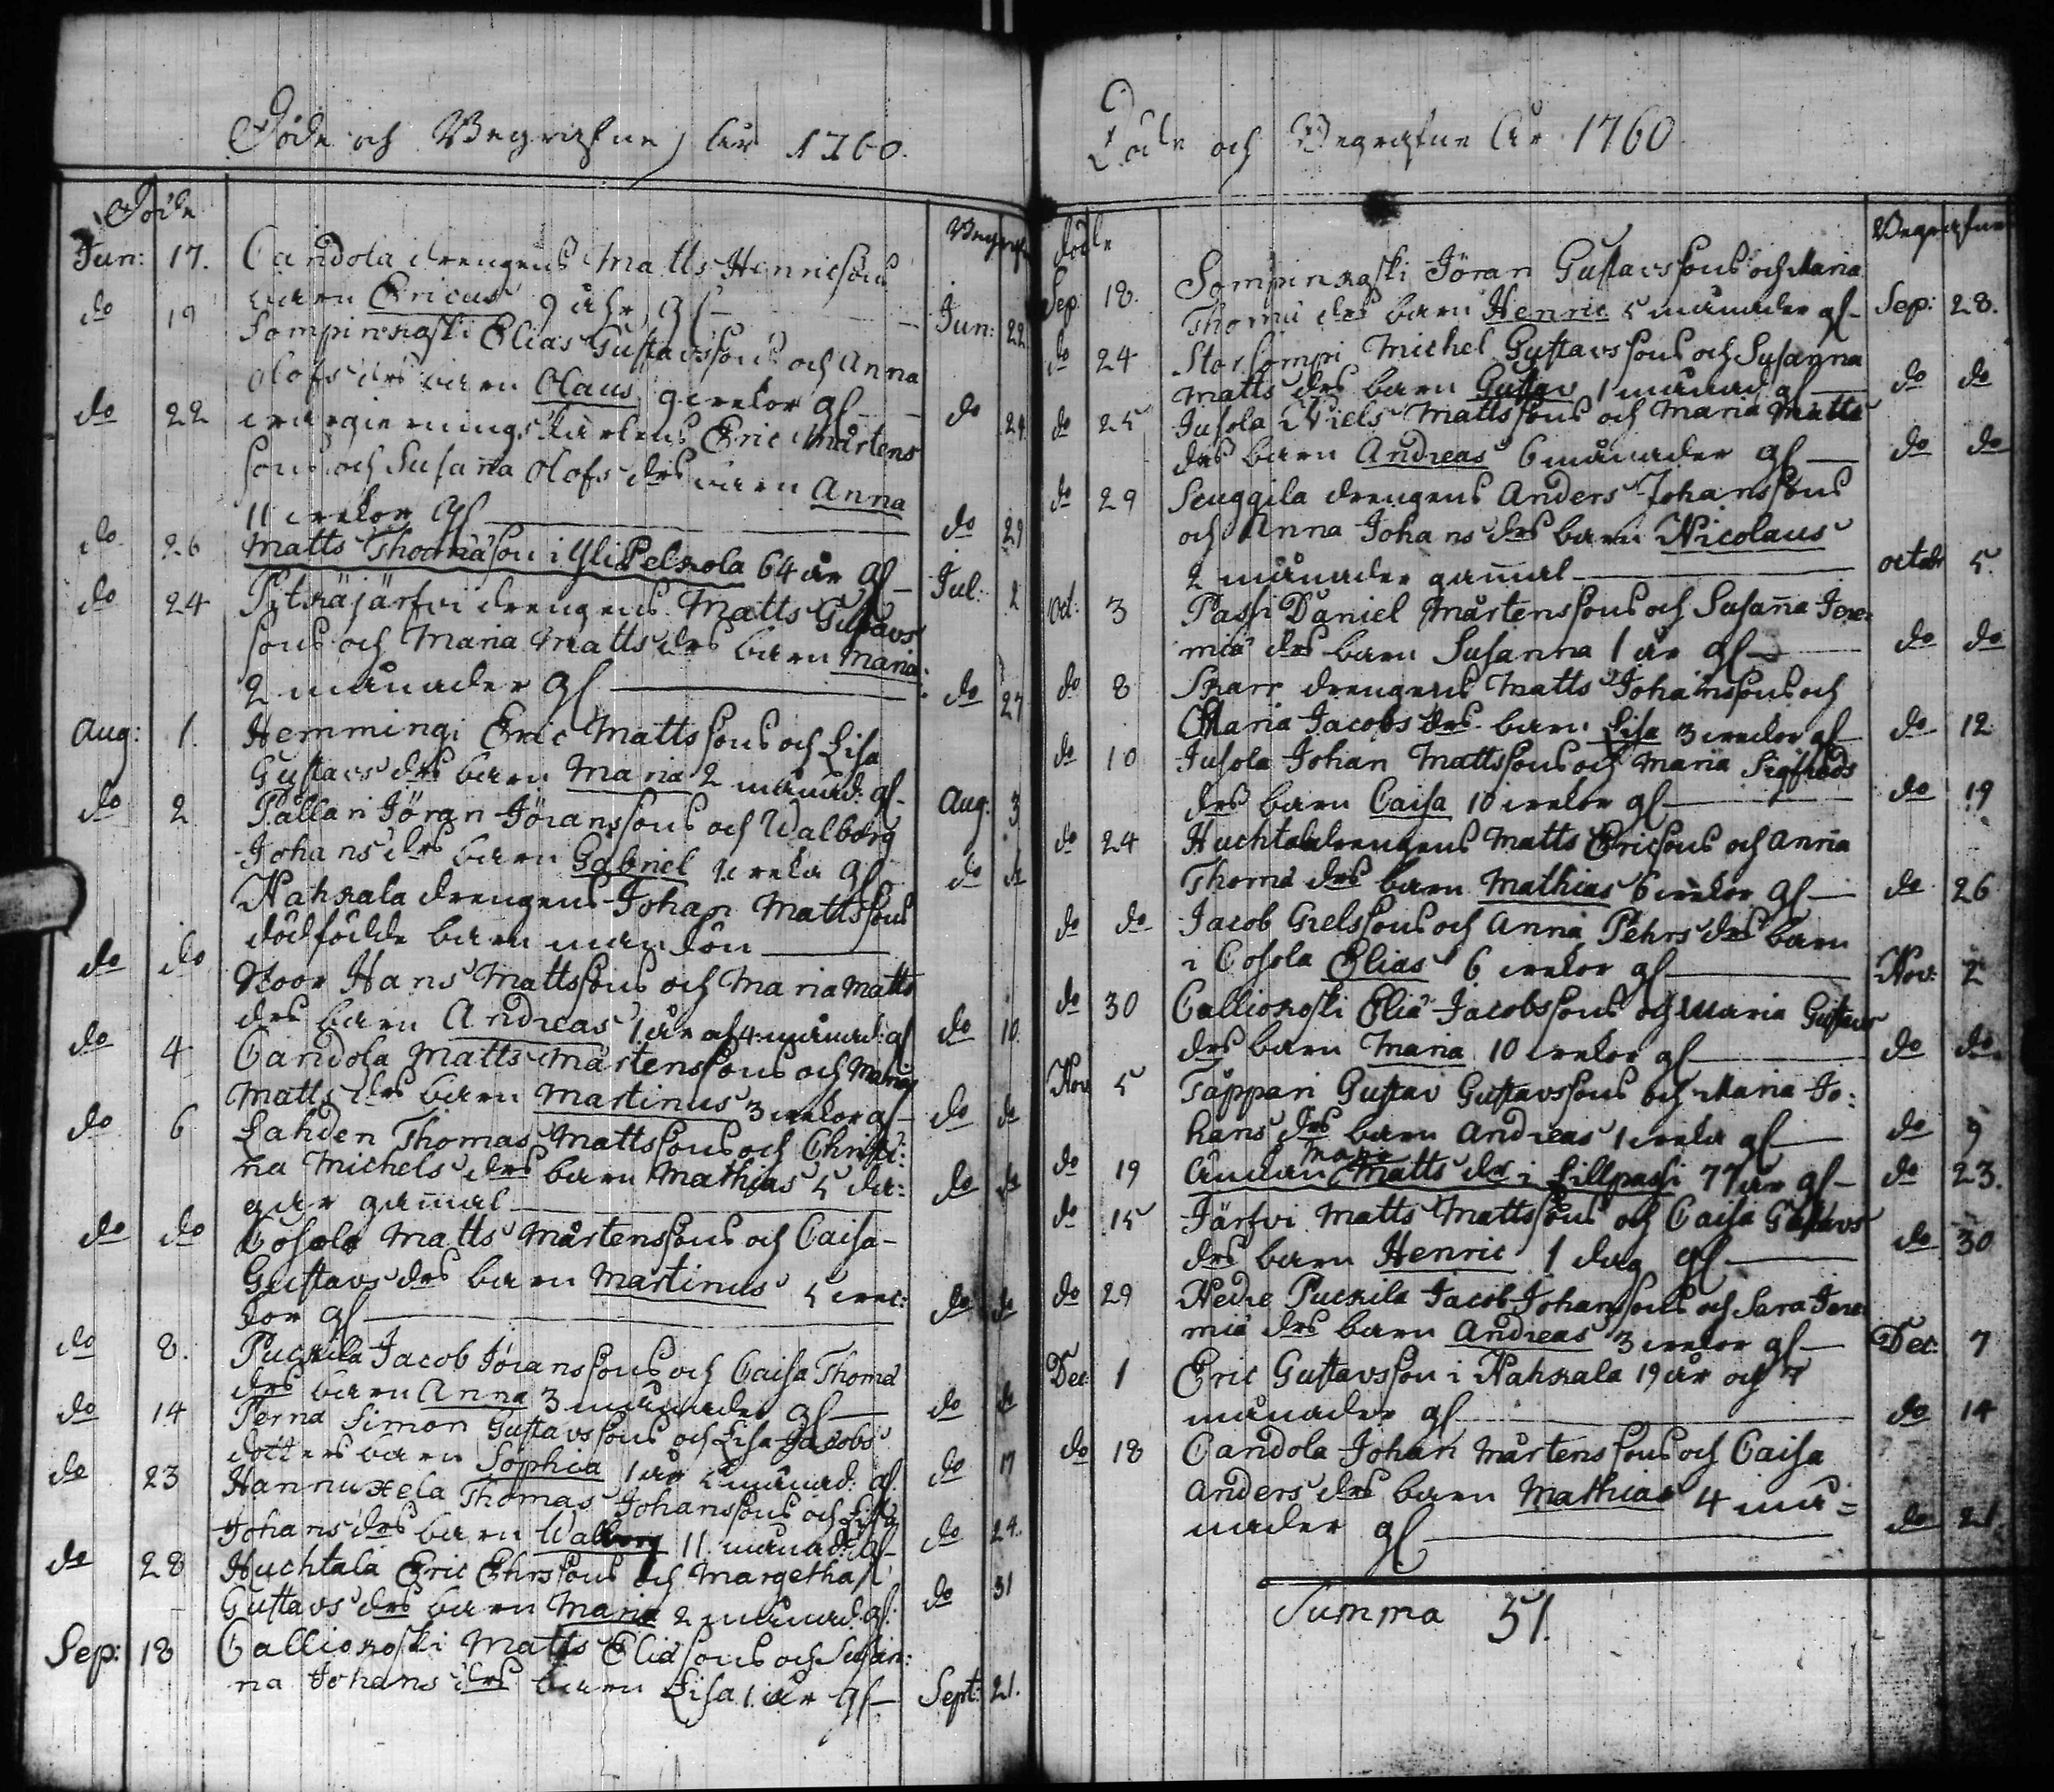 Döde och Begrafne år 1760.
Döde
Begrafn
Jun: 17. Candola drengens Matts Henricsons
barn Ericus 9 åhr gl Jun: 22
do 19 Sompinkoski Elias Gustavssons och Anna
Olofs drs barn Olaus 9 vekor gl do 29
do 22 Matts Eric Mårtens
sons och Susanna Olofs drs barn Anna
11 vekor gl do 29
do 26 Matts Thomasson i Yli Pelkola 64 år gl Jul: 2
do 24 Pytkäjärfvi drengens Matts Gustavs
sons och Maria Matts drs barn Maria
2 månader gl do 27
Aug: 1. Hemmingi Eric Mattssons och Lisa
Gustavs drs barn Maria 2 månad: gl Aug: 3
do 2 Pållari Jöran Jöranssons och Walborg
Johans drs barn Gabriel 1 veka gl do do
Nahkala drengens Johan Mattssons
dödfödde barn mankön
do do Noor Hans Mattssons och Maria Matts
drs barn Andreas 1 år af 4 månad: gl do 10.
do 4 Candola Matts Mårtenssons och Maria
Matts drs barn Martinus 3 vekor gl do do
do 6 Lahden Thomas Mattssons och Christi:
na Michels drs barn Mathias 5 da:
gar gamal do do
do do Cosola Matts Mårtenssons och Caisa
Gustavs drs barn Martinus 5 vec:
kor gl do do
do 8. Puckila Jacob Jöranssons och Caisa Thomæ
drs barn Anna 3 månader gl do do
do 14 Pernä Simon Gustavssons och Lisa Jacobs
dotters barn Sophia 1 år 5 månad: gl do 17
do 23 Hannuxela Thomas Johanssons och Lisa
Johans drs barn Walborg 11 månad: gl do 24.
do 28 Huchtala Eric Ehrssons och Margetha
Gustavs drs barn Maria 2 månad: gl: do 31
Sep: 18 Calliokoski Matts Eliæsons och Susan:
na Johans drs barn Lisa 1 år gl Sept: 21.
Döde och Begrafne År 1760
Döde
Begrafne
Sep: 18. Sompinkoski Jöran Gustavssons och Maria
Thomæ drs barn Henric 5 månader gl Sep: 28.
do 24 Storsompi Michel Gustavssons och Susanna
Matts drs barn Gustav 1 månad gl do do
do 25 Jusola Niels Mattssons och Maria Matts
drs barn Andreas 6 månader gl do do
do 29 Scuggila drengens Anders Johanssons
och Anna Johans drs barn Nicolaus
2 månader gamal octobr 5.
oct: 3 Passi Daniel Mårtenssons och Susanna Jere:
miæ drs barn Susanna 1 år gl do do
do 8 Skarr drengens Matts Johanssons och
Maria Jacobs drs barn Lisa 3 vekor gl do 12
do 10 Jusola Johan Mattssons och Maria Sigfreds
drs barn Caisa 10 vekor gl do 19
do 24 Huchtala drengens Matts Ericsons och Anna
Thomæ drs barn Mathias 6 vekor gl do 26
do do Jacob Grelssons och Anna Pehrs drs barn
i Cosola Elias 6 vekor gl Nov: 2
do 30 Calliokoski Eliæ Jacobssons och Maria Gustavs
drs barn Maria 10 vekor gl do do
Nov 5 Tåppari Gustav Gustavssons och Maria Jo:
hans drs barn Andreas 1 veka gl do 9
Maria
do 19 Enkan Matts dr i Lillpassi 77 år gl do 23.
do 15 Järfvi Matts Mattssons och Caisa Gustavs
drs barn Henric 1 dag gl do 30
do 29 Nedre Puckila Jacob Johanssons och Sara Jere:
miæ drs barn Andreas 3 vekor gl Dec: 7
Dec: 1 Eric Gustavsson i Nahkala 19 år och 7
månader gl do 14
do 18 Candola Johan Mårtenssons och Caisa
Anders drs barn Mathias 4 må=
nader gl do 21
Summa 51.